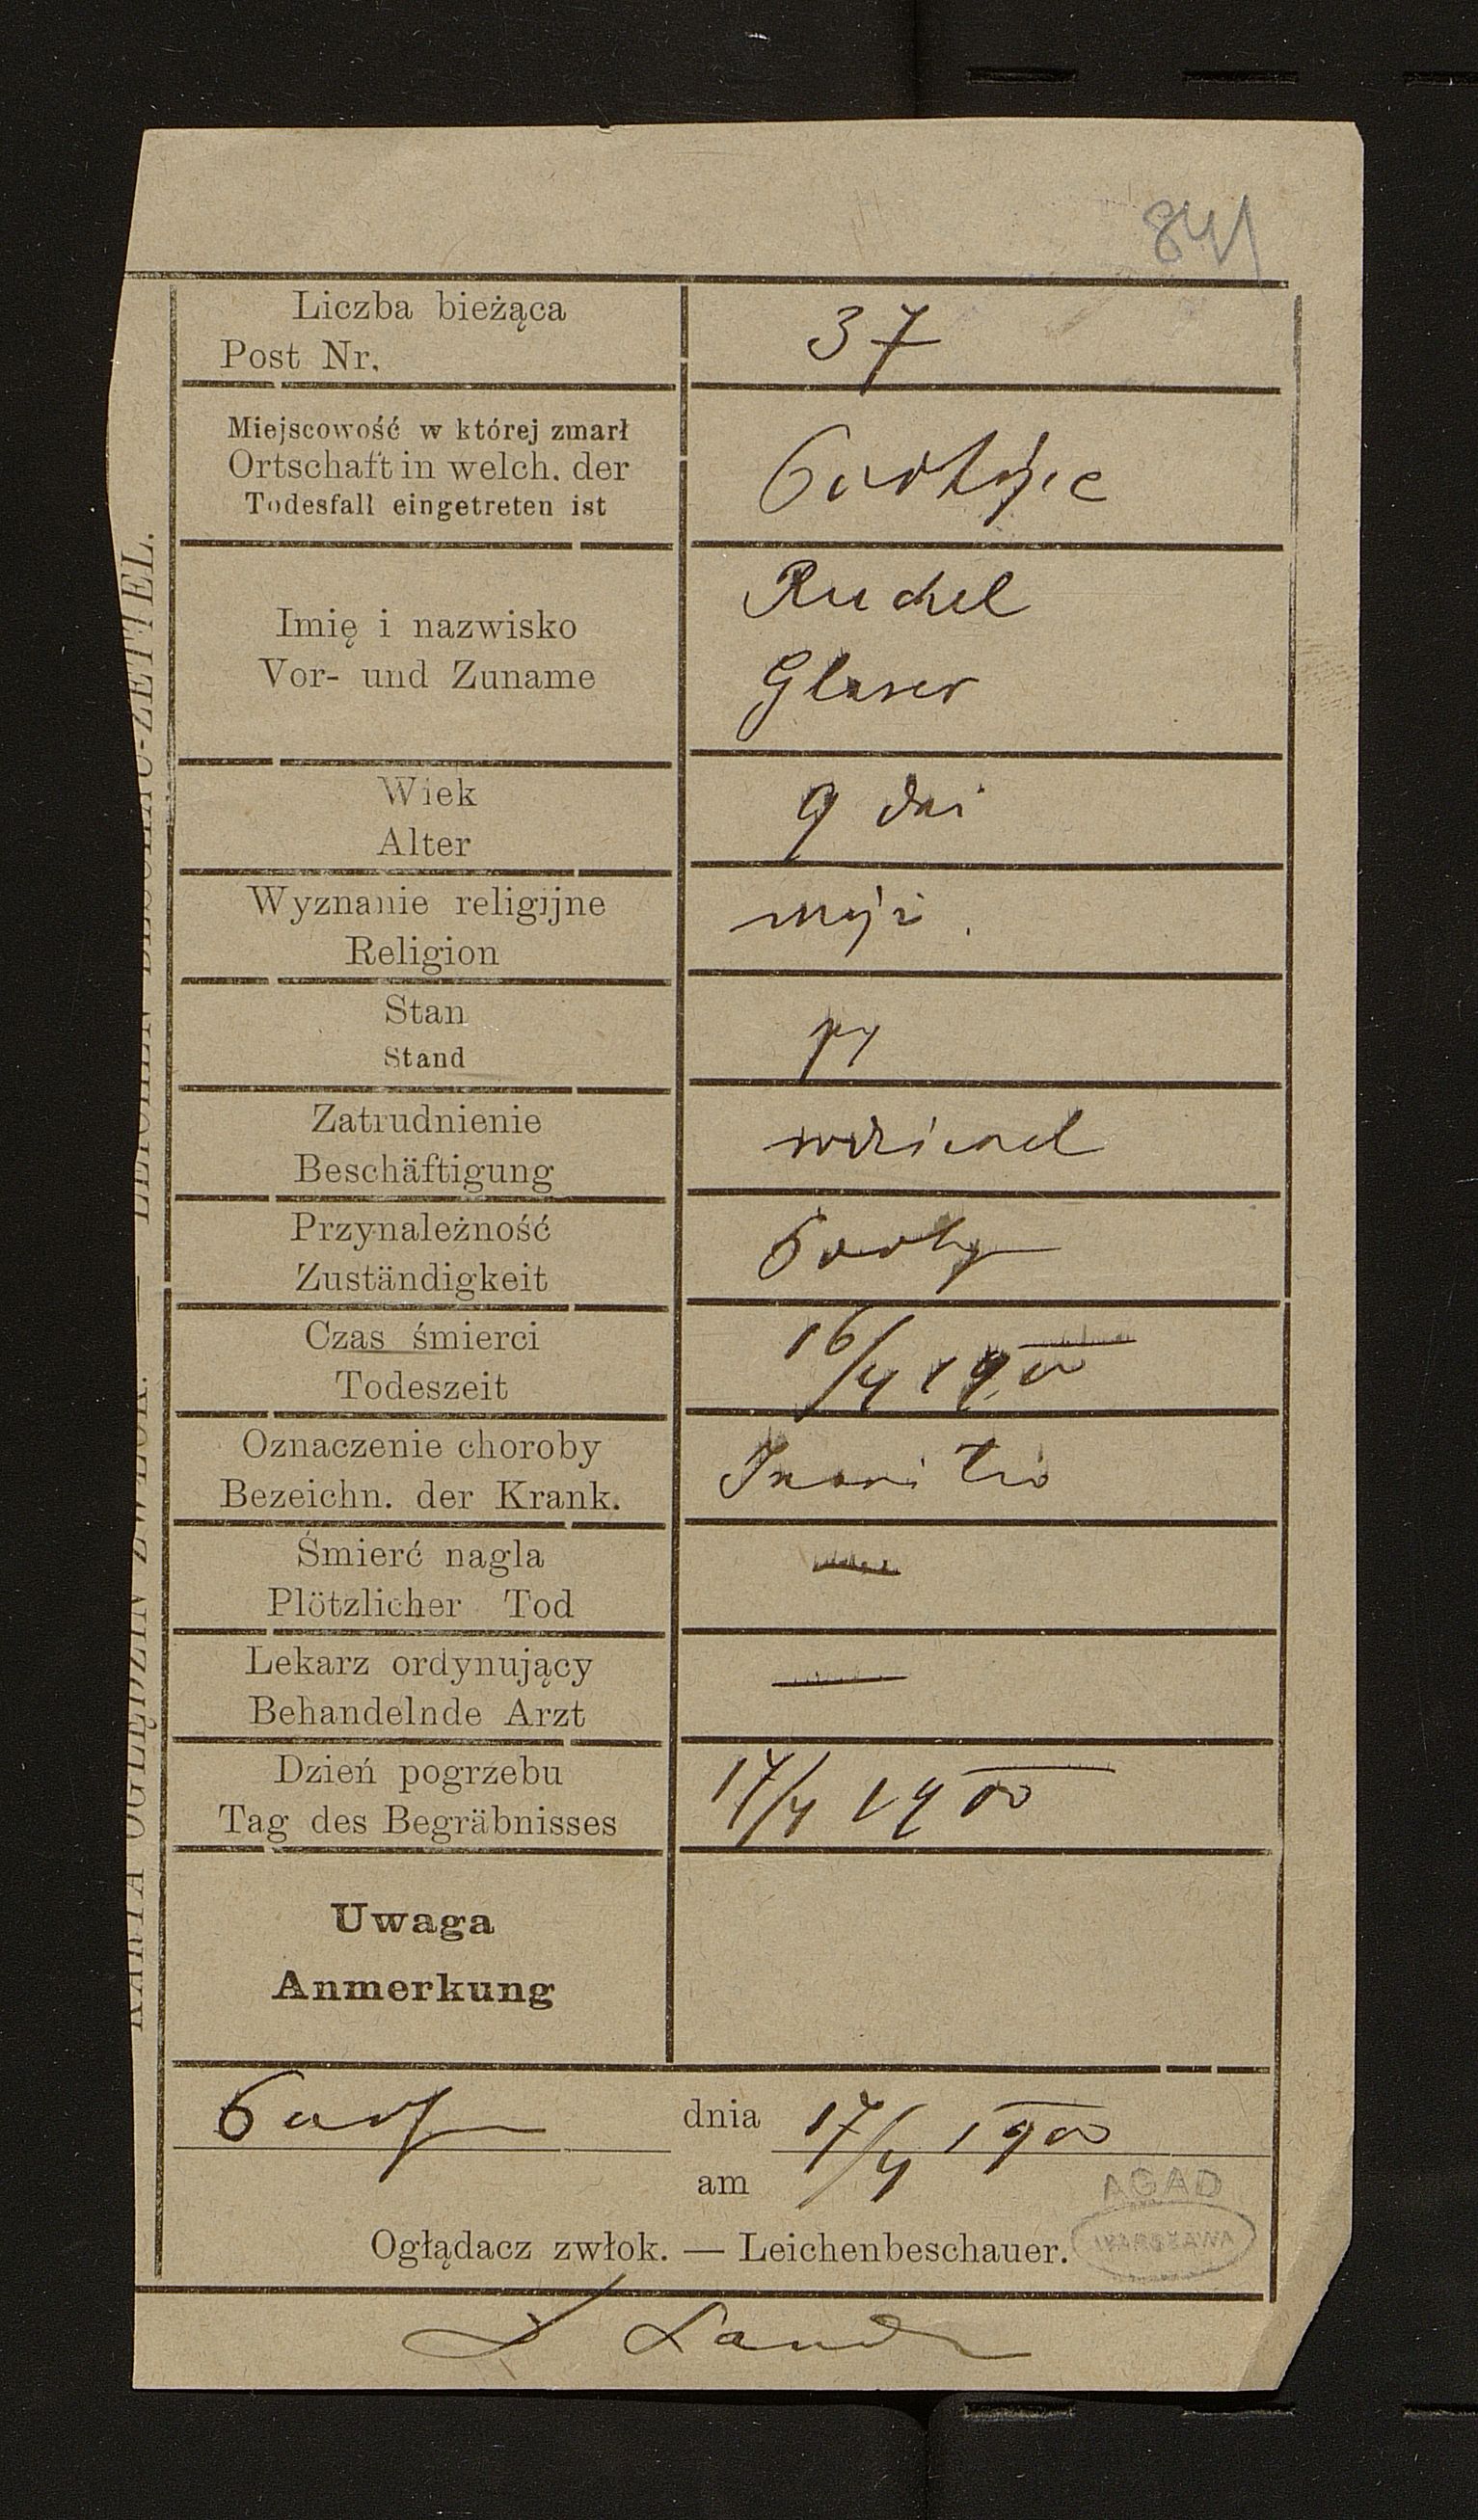 841
Liczba bieżąca
Post Nr.
37
Miejscowość w której zmarł
Ortschaft in welch. der
Todesfall eingetreten ist
Imię i nazwisko
Vor- und Zuname
Ruchel
Glaser
Wiek
Alter
9 dni
Wyznanie religijne
Religion
mojż.
Stan
Stand
Zatrudnienie
Beschäftigung
Przynależność
Zuständigkeit
Czas śmierci
Todeszeit
16/4 1900
Oznaczenie choroby
Bezeichn. der Krank.
Inanitio
Śmierć nagla
Plötzlicher Tod
—
Lekarz ordynujący
Behandelnde Arzt
—
Dzień pogrzebu
Tag des Begräbnisses
17/4 1900
Uwaga
Anmerkung
dnia 17/4 1900
am
Oglądacz zwłok. — Leichenbeschauer.
AGAD
WARSZAWA
KARTA OGLĘDZIN ZWŁOK. — LEICHEN BESCHAU-ZETTEL.